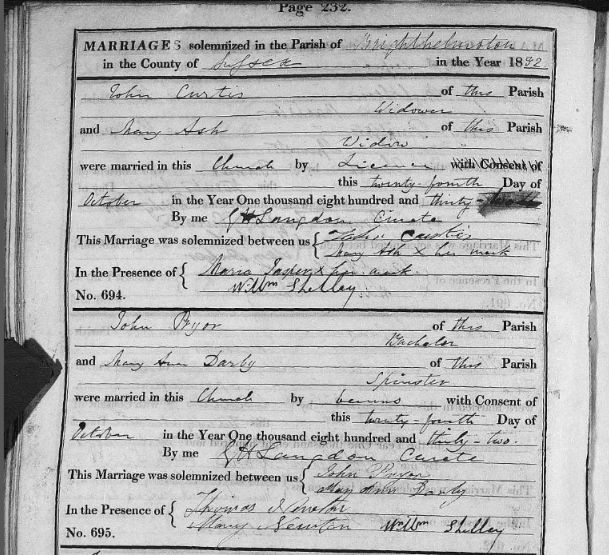 Page 232.
MARRIAGES solemnized in the Parish of Brighthelmston
in the County of Sussex in the Year 1832
John Curtis of this Parish
Widower
and Mary Ash of this Parish
Widow
were married in this Church by Licence with Consent of
this twenty-fourth Day of
October in the Year One thousand eight hundred and thirty-
By me G H Langdon Curate
This Marriage was solemnized between us { John Curtis
Mary Ash X her mark
In the Presence of { Maria X her mark.
Willm Shelley
No. 694.
John Pryor of this Parish
Bachelor
and Mary Ann Darby of this Parish
Spinster
were married in this Church by banns with Consent of
this twenty-fourth Day of
October in the Year One thousand eight hundred and thirty-two.
By me G H Langdon Curate
This Marriage was solemnized between us { John Pryor
Mary Ann Darby
In the Presence of { Thomas Newton
Mary Newton Willm Shelley
No. 695.